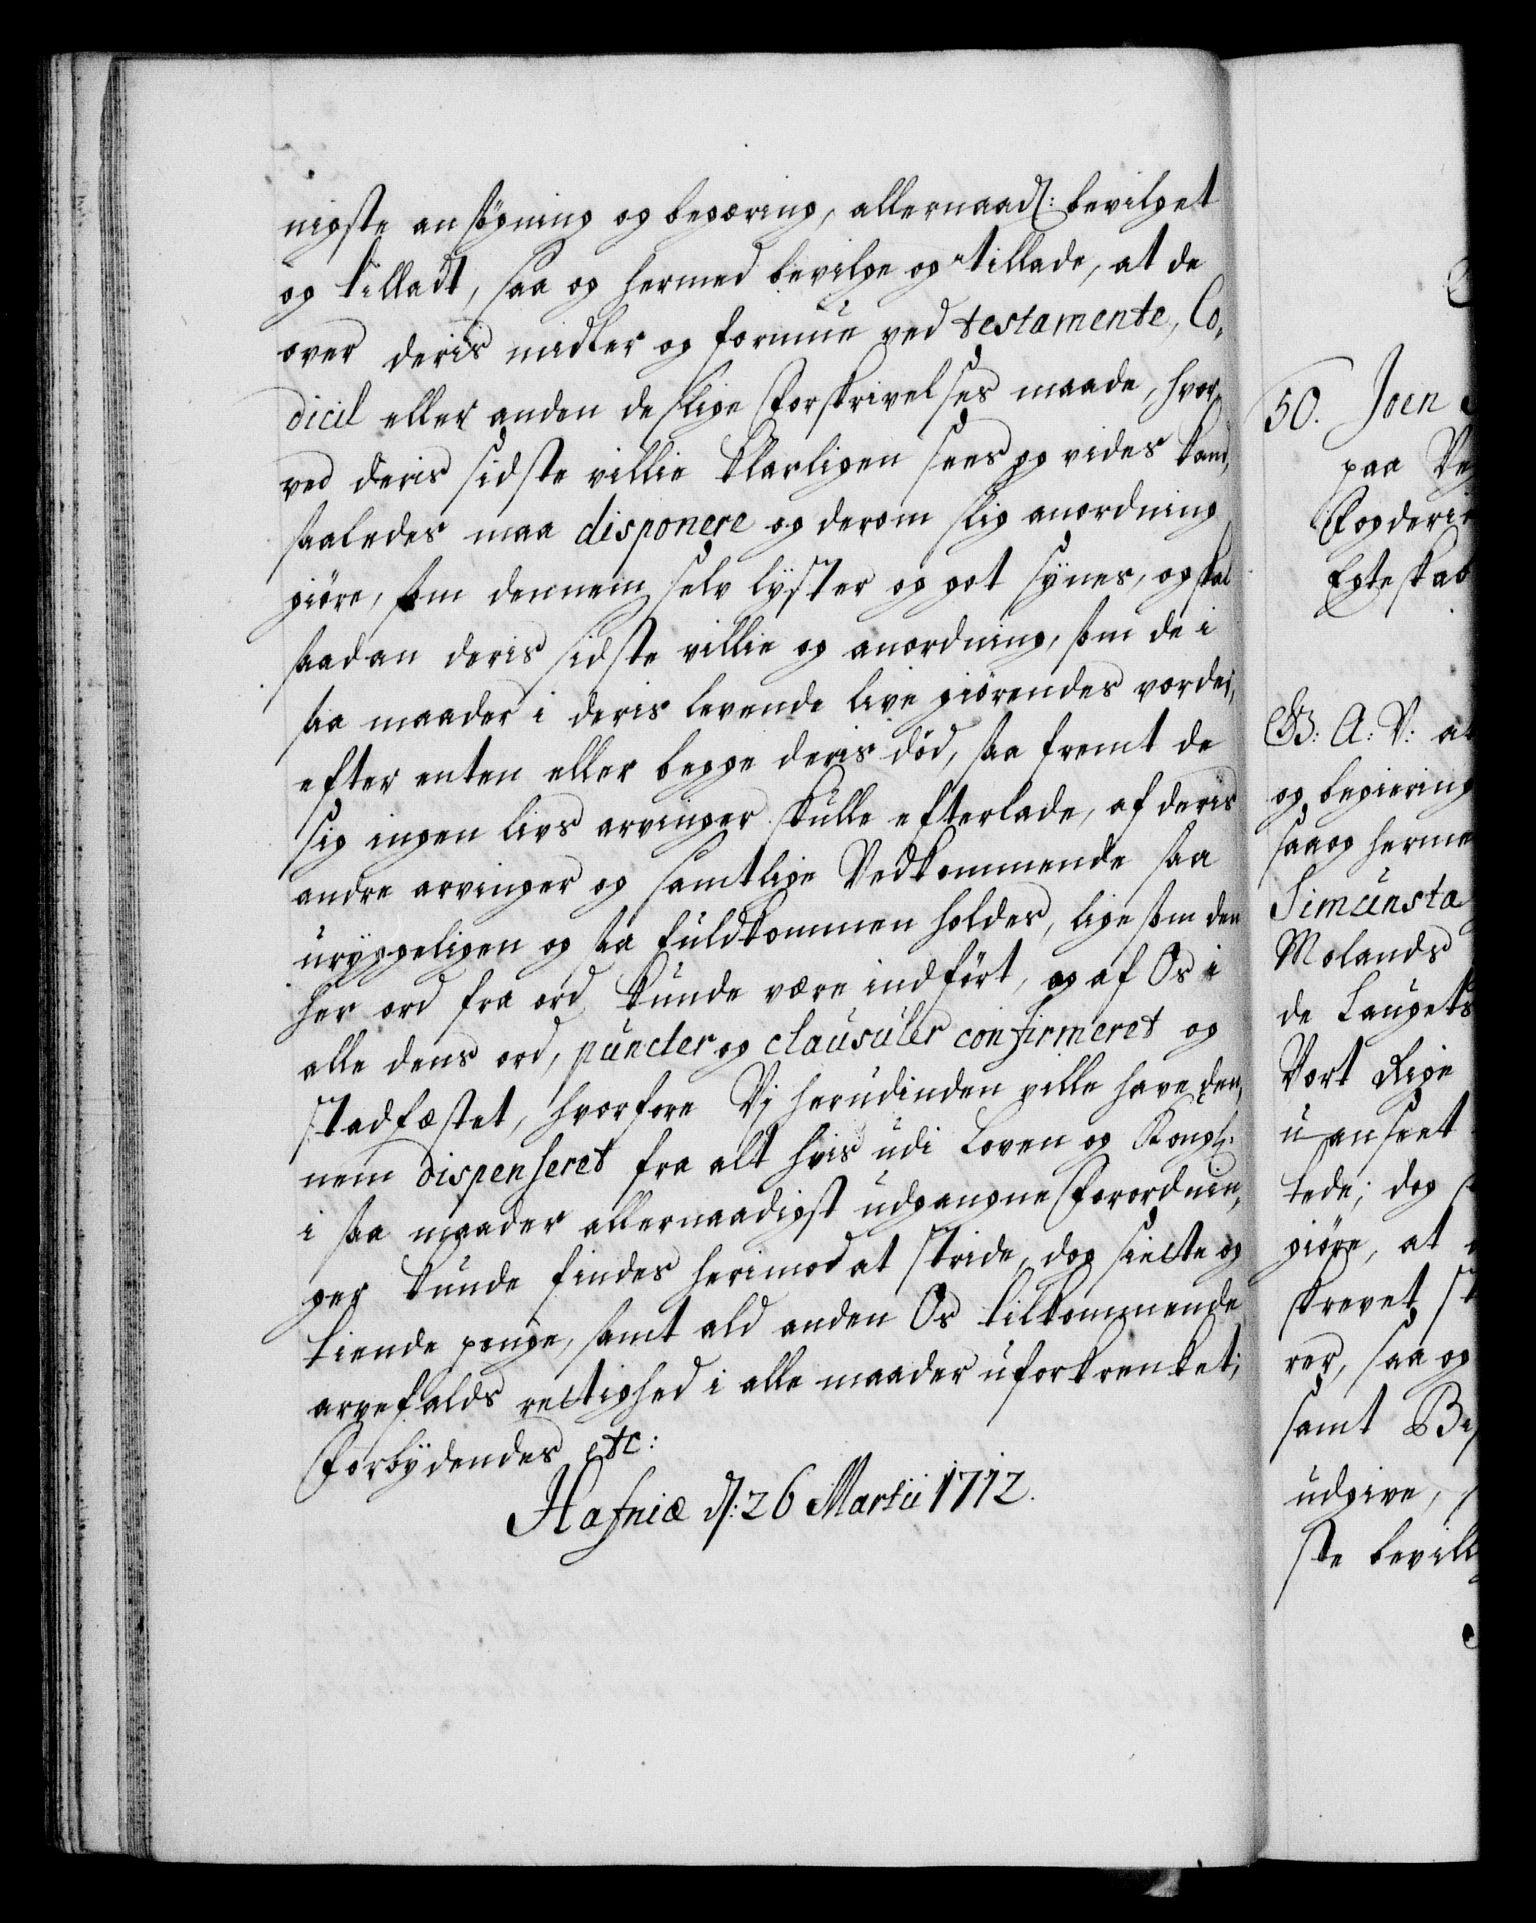 nigste ansögning og begæring, allernaad: bevilget
og tilladt, saa og hermed bevilge og tillade, at de
over deris midler og formue ved testamente, Co,
dicil eller anden deslige Forskrivelses maade, hvor,
ved deris sidste villie klarligen sees og vides kand,
saaledes maa disponere og derom slig anordning
giöre, som dennem selv lÿster og got sÿnes, og skal
saadan deris sidste villie og anordning, som de i
saa maader i deris levende live giörendes vorder,
efter enten eller begge deris död, saa fremt de
sig ingen livs arvinger skulle efterlade, af deris
andre arvinger og samtlige Vedkommende saa
urÿggeligen og saa fuldkommen holdes, ligesom den
her ord fra ord kunde være indfört, og af Os i
alle dens ord, puncter og clausuler confirmeret og
stadfæstet, hvorfore Vj herudinden ville have den,
nem dispenseret fra alt hvis udi Loven og Kongl:
i saa maader allernaadigst udgangne Forordnin,
ger kunde findes herimod at stride, dog siette og
tiende penge, samt ald anden Os tilkommende
arvefalds rettighed i alle maader uforkrenket;
Forbÿdendes etc:
Hafniæ d: 26 Martii 1712.
50. Joen
paa
Fogderi
Egteskab
G: A: V: at
og begiering
saa og herme
Simunsta
Molands
de Laugets
Vort Rige
uanseet
tede; dog
giöre, at
skrevet
rer, saa og
samt
udgive,
ste bevill